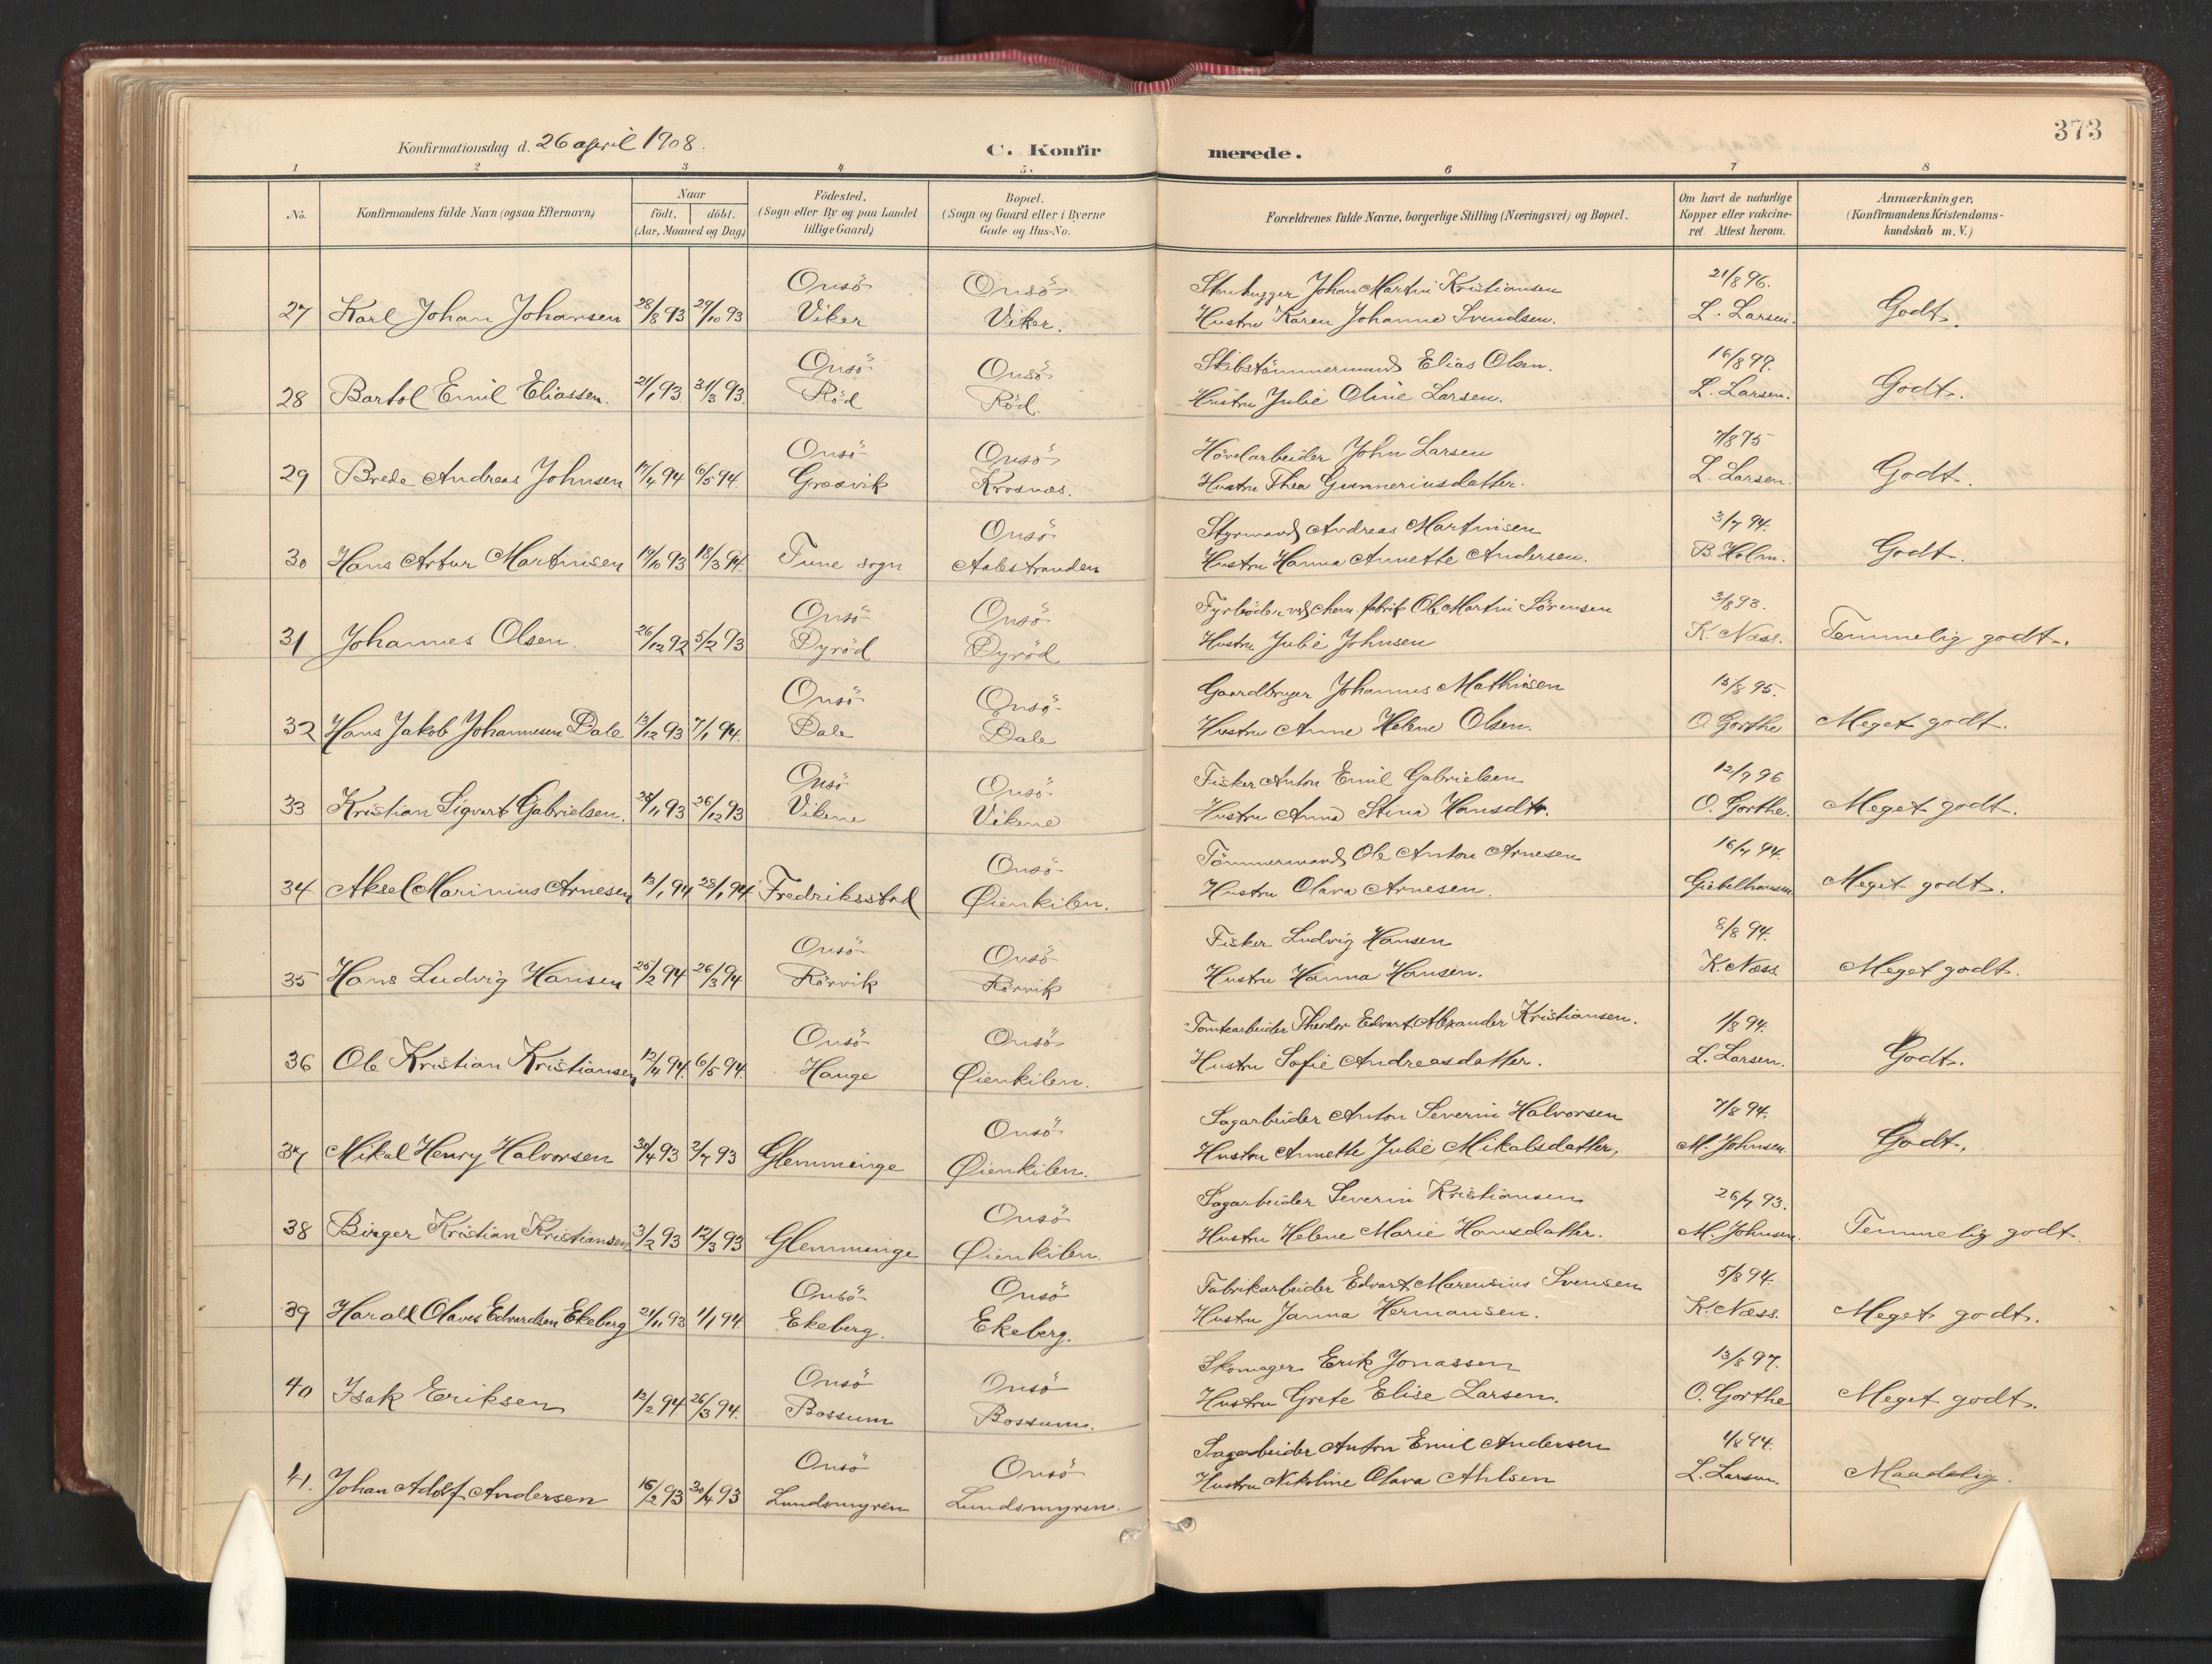 373
Konfirmationsdag d. 26 april 1908.
C. Konfirmerede.
1 2 3 4 5. 6 7 8
No.
Konfirmandens fulde Navn (ogsaa Efternavn)
Naar
födt. döbt.
(Aar, Maaned og Dag)
Födested.
(Sogn eller By og paa Landet
tillige Gaard)
Bopæl.
(Sogn og Gaard eller i Byerne
Gade og Hus-No.
Forældrenes fulde Navne, borgerlige Stilling (Næringsvei) og Bopæl.
Om havt de naturlige
Kopper eller vakcine-
ret. Attest herom.
Anmærkninger,
(Konfirmandens Kristendoms-
kundskab m. V.)
Onsö Onsö Stenhugger Johan Martin Kristiansen 21/8 96.
27 Karl Johan Johansen 28/8 93 29/10 93 Viker Viker. Hustru Karen Johanne Svendsen. L. Larsen. Godt.
Onsö Onsö Skibstömmermand Elias Olsen. 16/8 99.
28 Bartol Emil Eliassen. 21/1 93. 31/3 93. Röd Röd. Hustru Julie Oline Larsen. L. Larsen. Godt.
Onsö Onsö Hövelarbeider John Larsen 7/8 95
29 Brede Andreas Johnsen 17/4 94 6/5 94. Gresvik Krosnæs. Hustru Thea Gunneriusdatter. L. Larsen. Godt.
Onsö Styrmand Andreas Martinsen 3/7 94.
30 Hans Artur Martinsen 19/10 93 18/3 94. Tune sogn Aalestranden Hustru Hanna Annette Andersen. B. Holm. Godt.
Onsö Onsö Fyrböder ved chem. fabrik Ole Martin Sörensen 3/8 93.
31 Johannes Olsen 26/12 92 5/2 93 Dyröd Dyröd Hustru Julie Johnsen K. Næss. Temmelig godt.
Onsö Onsö Gaardbruger Johannes Mathisen 13/8 95.
32 Hans Jakob Johannesen Dale 13/12 93 7/1 94. Dale Dale Hustru Anne Helene Olsen. O. Gorthe Meget godt.
Onsö Onsö Fisker Anton Emil Gabrielsen 12/9 96
33 Kristian Sigvart Gabrielsen. 25/11 93 26/12 93 Vikene Vikene Hustru Anna Stina Hansdtr. O. Gorthe. Meget godt.
Onsö Tömmermand Ole Anton Arnesen 16/7 94.
34 Aksel Marinius Arnesen 13/1 94 28/1 94 Fredriksstad Øienkilen. Hustru Olava Arnesen. Giebelhausen Meget godt.
Onsö Onsö Fisker Ludvig Hansen 8/8 94.
35 Hans Ludvig Hansen 25/2 94 26/3 94 Rörvik Rörvik Hustru Hanna Hansen. K. Næss Meget godt.
Onsö Onsö Tomtearbeider Theodor Edvart Alexander Kristiansen. 1/8 94.
36 Ole Kristian Kristiansen 12/4 94. 6/5 94. Hauge Øienkilen. Hustru Sofie Andreasdatter. L. Larsen. Godt.
Onsö Sagarbeider Anton Severin Halvorsen 7/8 94.
37 Mikal Henry Halvorsen 30/4 93 2/7 93 Glemminge Øienkilen. Hustru Annette Julie Mikalsdatter, M. Johnsen. Godt,
Onsö Sagarbeider Severin Kristiansen 26/7 93.
38 Birger Kristian Kristiansen 3/2 93 12/3 93 Glemminge Øienkilen. Hustru Helene Marie Hansdatter. M. Johnsen. Temmelig godt.
Onsö Onsö Fabrikarbeider Edvart Marensius Svensen 5/8 94.
39 Harald Olaves Edvardsen Ekeberg 21/11 93 1/1 94. Ekeberg. Ekeberg. Hustru Janna Hermansen. K. Næss. Meget godt.
Onsö Onsö Skomager Erik Jonassen 13/8 97.
40 Isak Eriksen 12/2 94 26/3 94. Bossum Bossum. Hustru Grete Elise Larsen. O. Gorthe Meget godt.
Onsö Onsö Sagarbeider Anton Emil Andersen 1/8 94.
41. Johan Adolf Andersen 16/2 93 30/4 93 Lundsmyren Lundsmyren. Hustru Nikoline Olava Ahlsen L. Larsen. Maadelig.